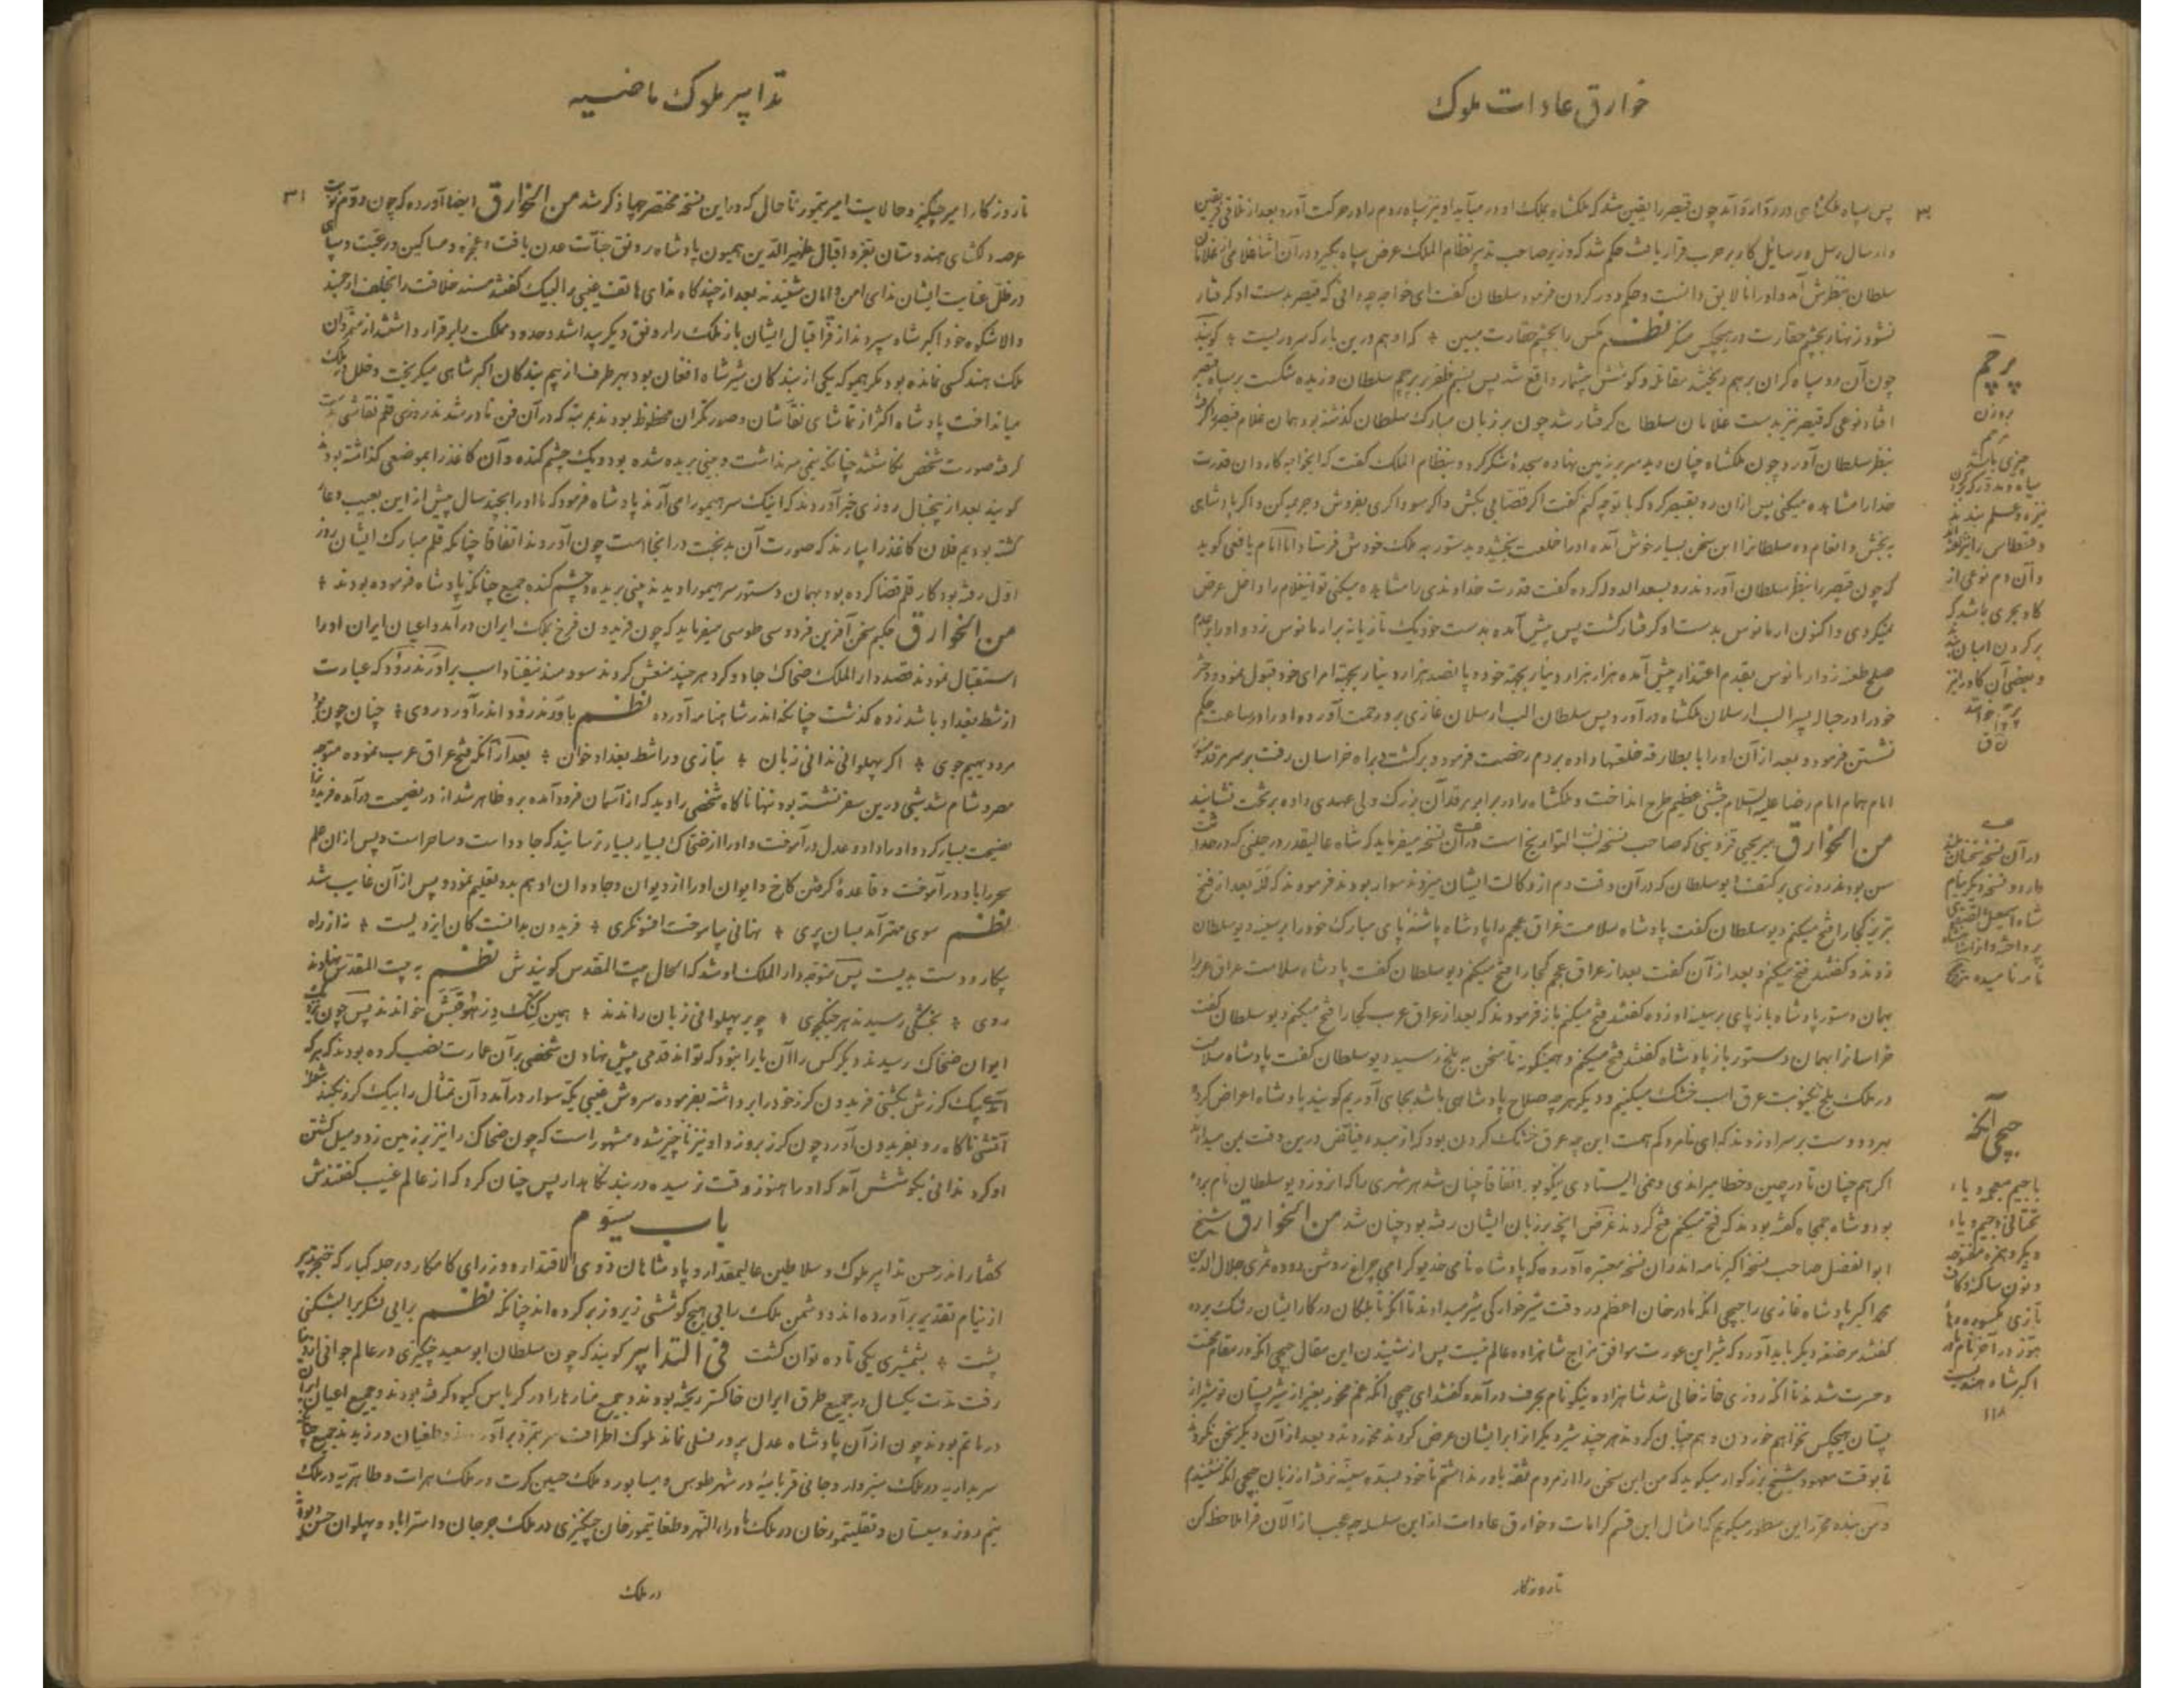 خوارق عادات ملوک
پس سپاه ملکشاهی در ردّ او آمد چون قیصر را یقین شد که ملکشاه بملک او در میآید او نیز سپاه روم را در حرکت آورد بعد از تلاقی فریقین
و ارسال رسل و رسایل کار بر حرب قرار یافت حکم شد که وزیر صاحب تدبیر نظام الملک عرض سپاه بگیرد در آن اثنا غلامی از غلامان
سلطان بنظرش آمد و او را نالایق دانست و حکم دور کردن فرمود سلطان گفت ای خواجه چه دانی که قیصر بدست او گرفتار
نشود زنهار بچشم حقارت در هیچکس منگر نظم مگس را بچشم حقارت مبین ٭ که او هم درین بارگه سروریست ٭ گویند
چون آن دو سپاه گران برهم ریختند مقاتله و کوشش بیشمار واقع شد پس نسیم ظفر بر پرچم سلطان وزیده شکست بر سپاه قیصر
افتاد نوعی که قیصر نیز بدست غلامان سلطان گرفتار شد چون بر زبان مبارک سلطان گذشته بود همان غلام قیصر را گرفته
بنظر سلطان آورد چون ملکشاه چنان دید سر بر زمین نهاده سجدهٔ شکر کرد و بنظام الملک گفت که ایخواجه کاردان قدرت
خدا را مشاهده میکنی پس ازان رو بقیصر کرد که با تو چه کنم گفت اگر قصابی بکش و اگر سوداگری بفروش و جرمیه کن و اگر پادشاهی
به بخش و انعام ده سلطانرا این سخن بسیار خوش آمده او را خلعت بخشید و بدستور به ملک خودش فرستاد اما امام یافعی گوید
که چون قیصر را بنظر سلطان آوردند رو بسعد الدوله کرده گفت قدرت خداوندی را مشاهده میکنی تو اینغلام را داخل عرض
نمیکردی و اکنون ارمانوس بدست او گرفتار گشت پس پیش آمده بدست خود یک تازیانه بر ارمانوس زد و او را بعدم
صلح طعنه زد ارمانوس بقدم اعتذار پیش آمده هزار هزار دینار بجهة خود و پانصد هزار دینار بجهة امرای خود قبول نمود و دختر
خود را در حباله پسر الب ارسلان ملکشاه در آورد پس سلطان الب ارسلان غازی برو رحمت آورده او را در ساعت حکم
نشستن فرمود و بعد از آن او را با بطارقه خلعتها داده بردم رخصت فرمود و برگشت براه خراسان رفت بر سر مرقد منور
امام همام امام رضا علیه السلام جشنی عظیم طرح انداخت و ملکشاه را در برابر مرقد آن بزرگ ولی عهدی داده بر تخت نشانید
من الخوارق میر یحیی قزوینی که صاحب نسخه لب التواریخ است در آن نسخه میفرماید که شاه عالیقدر در حینی که در حداثت
سن بودند روزی بر کتف دیو سلطان که در آن وقت دم از وکالت ایشان میزوند سوار بودند فرمودند که لله بعد از فتح
تبریز کجا را فتح میکنم دیو سلطان گفت پادشاه سلامت عراق عجم را پادشاه پاشنه پای مبارک خود را بر سینه دیو سلطان
زدند و گفتند فتح میکنم و بعد از آن گفت بعد از عراق عجم کجا را فتح میکنم دیو سلطان گفت پادشاه سلامت عراق عرب را
بهمان دستور پادشاه باز پای بر سینه او زده گفتند فتح میکنم باز فرمودند که بعد از عراق عرب کجا را فتح میکنم دیو سلطان گفت
خراسانرا بهمان دستور باز پادشاه گفتند فتح میکنم و همینگونه تا سخن به بلخ رسید دیو سلطان گفت پادشاه سلامت
در ملک بلخ یکنوبت عرق اسب خشک میکنیم و دیگر هرچه صلاح پادشاهی باشد بجای آوریم گویند پادشاه اعراض کرده
بهر دو دست بر سر او زدند که ای نامرد کم همت این چه عرق خشک کردن بود که از مبدء فیاض درین وقت بمن میدادند
اگر هم چنان تا در چین و خطا میراندی و نمی ایستادی نیکو بود اتفاقا چنان شد هر شهری را که انروز دیو سلطان نام برده
بود و شاه جمجاه گفته بودند که فتح میکنم فتح کردند غرض آنچه بر زبان ایشان رفته بود چنان شد من الخوارق شیخ
ابو الفضل صاحب نسخه اکبرنامه اندران نسخه معتبره آورده که پادشاه نامی خدیو گرامی چراغ روشن دوده تمری جلال الدین
محمد اکبر پادشاه غازی را جیجی انگه مادر خان اعظم در وقت شیرخوارگی شیر میدادند تا آنکه نا ملکان در کار ایشان رشک برده
گفتند مرضعه دیگر باید آورد که شیر این عورت موافق مزاج شاهزاده عالم نیست پس از شنیدن این مقال جیجی انگه در مقام محنت
و حسرت شدند تا آنکه روزی خانه خالی شد شاهزاده نیکونام بحرف در آمده گفتند ای جیجی انگه غم مخور بغیر از شیر پستان تو شیر از
پستان هیچکس نخواهم خوردن و هم چنان کردند هر چند شیر دیگر از برای ایشان عرض کردند نخوردند و بعد از آن دیگر سخن نکردند
تا بوقت معهود شیخ بزرگوار میگوید که من این سخن را از مردم ثقه باور نداشتم تا خود بنده سینه نرفته از زبان جیجی انگه نشنیدم
و من بنده محرر این سطور میگویم که امثال این قسم کرامات و خوارق عادات از این سلسله چه عجب از الان فرا ملاحظه کن
تا روزگار
پرچم
بروزن
مرچم
چیزی باشد
نیزه و علم بندند
و آن دم نوعی از
گاو بحری باشد که
بر گردن اسبان
و بعضی آن گاو را نیز
پرچم خوانند
در آن نسخه
دارد و نسخه دیگر بنام
جیجی آنگه
با جیم معجمه و یاء
تحتانی و جیم و یاء
دیگر و همزه مفتوحه
و نون ساکنه و کاف
هوز در آخر نام
اکبر شاه
۱۱۸
تدابیر ملوک ماضیه
۳۱
تا روزگار امیر چنگیز و حالایت امیر تیمور تا حال که در این نسخه مختصر چها ذکر شد من الخوارق ایضا آورده که چون دوّم نوبت
عرصه دلگشای هندوستان بعزّ و اقبال ظهیر الدّین همیون پادشاه رونق جنّات عدن یافت و عجزه و مساکین و رعیّت و سپاهی
در ظلّ عنایت ایشان ندای امن و امان شنیدند بعد از چندگاه ندای هاتف غیبی را لبیک گفتند مسند خلافت را بخلف ارجمند
والاشکوه خود اکبر شاه سپردند از فرّ اقبال ایشان باز ملک را رونق دیگر پیدا شد و حدود مملکت پایدار قرار داشتند از متمرّدان
ملک هند کسی نمانده بود مگر هیمو که یکی از بندگان شیر شاه افغان بود بهر طرف از بیم بندگان اکبر شاهی میگریخت و خلل در ملک
میانداخت پادشاه اکثر از تماشای نقاشان و صورتگران محظوظ بودند بمرتبه که در آن فن نادر شدند روزی قلم نقاشی بدست
گرفته صورت شخصی نگاشتند چنانکه نیمی سر نداشت و بینی بریده شده بود و یک چشم کنده و آن کاغذ را بموضعی گذاشته بودند
گویند بعد از پنجسال روزی خبر آوردند که اینک سر هیمو را می آرند پادشاه فرمود که ما او را بچند سال پیش از این بعیب دعا
کشته بودیم فلان کاغذ را بیارند که صورت آن بدبخت در انجا است چون آوردند اتفاقا چنانکه قلم مبارک ایشان روز
اوّل رفته بود کار قلم قضا کرده بود بهمان دستور سر هیمو را دیدند بینی بریده و چشم کنده جمیع چنانکه پادشاه فرموده بودند ٭
من الخوارق حکیم سخن آفرین فردوسی طوسی میفرماید که چون فریدون فرخ بملک ایران در آمد و اعیان ایران او را
استقبال نمودند قصد دار الملک ضحاک جادو کرد هر چند منعش کردند سودمند نیفتاد اسب بر اوندرود که عبارت
از شط بغداد باشد زده گذشت چنانکه اندر شاهنامه آورده نظم باوندرود اندر آورد روی ٭ چنان چون بود
مرد دیهیم جوی ٭ اگر پهلوانی ندانی زبان ٭ بتازی در اشط بغداد خوان ٭ بعد از آنکه فتح عراق عرب نموده متوجه
مصر و شام شد شبی درین سفر نشسته بود تنها ناگاه شخصی را دید که از آسمان فرود آمده برو ظاهر شد از در نصیحت در آمده فریدونرا
نصیحت بسیار کرد و او را داد و عدل در آموخت و او را از ضحاک بسیار بسیار ترسانید که جادو است و ساحر است و پس از ان علم
سحر را باو در آموخت و قاعدهٔ گرفتن کاخ و ایوان او را از دیوان و جادوان او هم بدو تعلیم نمود و پس از آن غایب شد
نظم سوی مهتر آمد بسان پری ٭ نهانی بیاموخت افسونگری ٭ فریدون بدانست کان ایزدیست ٭ نه از راه
پیکار و دست بدیست پس متوجه دار الملک او شد که الحال بیت المقدس گویندش نظم به بیت المقدس نهادند
روی ٭ بخشکی رسیدند هر جنگجوی ٭ چو بر پهلوانی زبان راندند ٭ همین گنگ دژ هوقبش خواندند پس چون نزدیک
ایوان ضحاک رسیدند دیگر کس را آن یارا نبود که تواند قدمی پیش نهادن شخصی بر آن عمارت نصب کرده بودند که هر که
آمدی بیک گرزش بکشتی فریدون گرز خود را برداشته بفرموده سروش غیبی یکه سوار در آمد و آن تمثال را بیک گرز بکند
آتشی ناگاه رو بفریدون آورد چون گرز برو زد او نیز ناچیز شد و مشهور است که چون ضحاک را نیز بر زمین زد و میل کشتن
او کرد ندائی بگوشش آمد که او را هنوز وقت نرسیده در بند نگاهدار پس چنان کرد که از عالم غیب گفتندش
باب سیّوم
گفتار اندر حسن تدابیر ملوک و سلاطین عالیمقدار و پادشاهان ذوی الاقتدار و وزرای کامکار در جله کبار که خنجر تدبیر
از نیام تقدیر برآورده اند و دشمن ملک را بی هیچ کوششی زیر و زبر کرده اند چنانکه نظم برایی لشکریرا بشکنی
پشت ٭ بشمشیری یکی تا ده توان کشت فی التدابیر گویند که چون سلطان ابو سعید چنگیزی در عالم جوانی از دنیا
رفت مدّت یکسال در جمیع طرق ایران خاکستر ریخته بودند و جمیع منارها را در کرباس کبود گرفته بودند و جمیع اعیان ایران
در ماتم بودند چون از آن پادشاه عدل پرور نسلی نماند ملوک اطراف سر بتمرّد برآوردند و طغیان ورزیدند جمیع چنانکه
سربداریه در ملک سبزوار و جانی قربانیه در شهر طوس و نیسابور و ملک حسین کرت در ملک هرات و طاهریه در ملک
نیمروز و سیستان و تغلیتمور خان در ملک ماوراء النّهر و طغاتیمور خان چنگیزی در ملک جرجان و استراباد و پهلوان حسن
در ملک